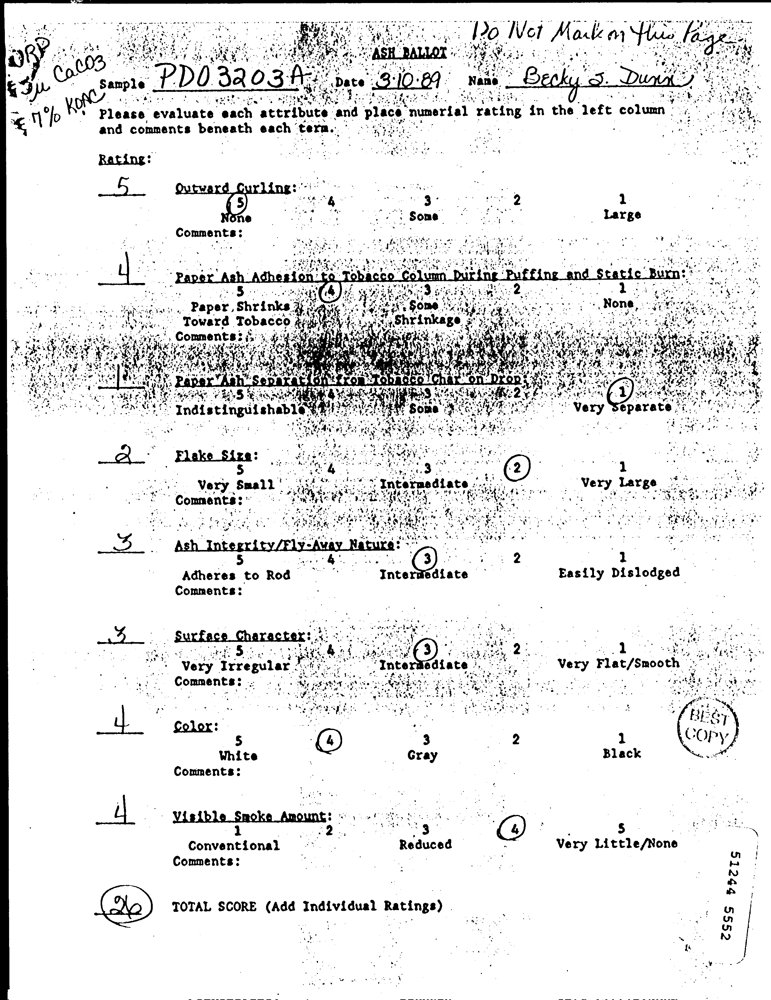 Do Not Mark on this Page
ORP
5u CaCO3
7% KOAC
ASH BALLOT
Sample PD03203A Date 3-10-89 Name Becky S. Dunn
Please evaluate each attribute and place numerial rating in the left column
and comments beneath each term.
Rating:
5 Outward Curling:
5 4 3 2 1
None Some Large
Comments:
4 Paper Ash Adhesion to Tobacco Column During Puffing and Static Burn:
5 4 3 2 1
Paper Shrinks Some None
Toward Tobacco Shrinkage
Comments:
1 Paper Ash Separation from Tobacco Char on Drop:
5 4 3 2 1
Indistinguishable Some Very Separate
2 Flake Size:
5 4 3 2 1
Very Small Intermediate Very Large
Comments:
3 Ash Integrity/Fly-Away Nature:
5 4 3 2 1
Adheres to Rod Intermediate Easily Dislodged
Comments:
3 Surface Character:
5 4 3 2 1
Very Irregular Intermediate Very Flat/Smooth
Comments:
4 Color:
5 4 3 2 1
White Gray Black
Comments:
BEST
COPY
4 Visible Smoke Amount:
1 2 3 4 5
Conventional Reduced Very Little/None
Comments:
26 TOTAL SCORE (Add Individual Ratings)
51244 5552